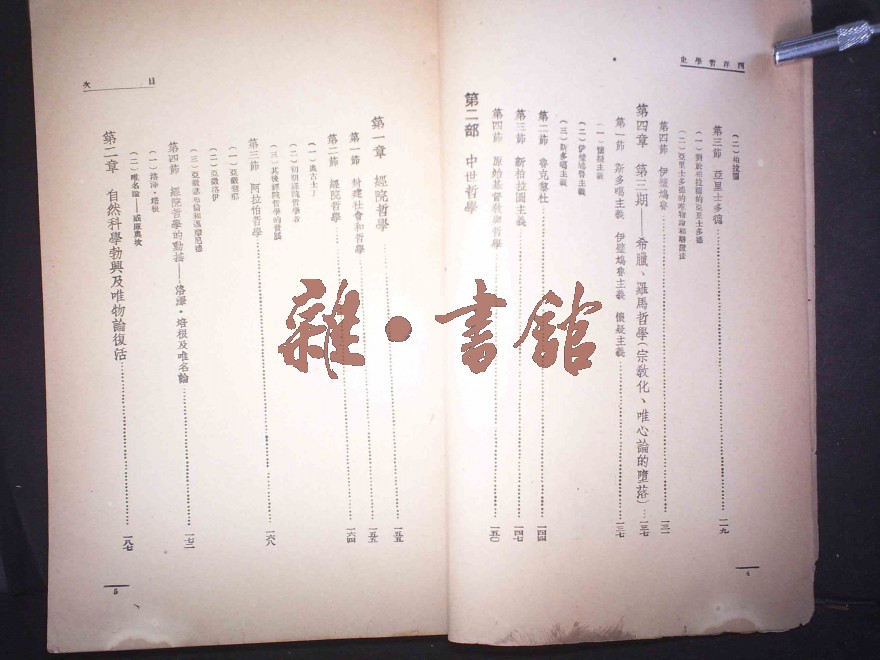 西洋哲學史
(二)柏拉圖
第三節 亞里士多德……一一九
(一)對於柏拉圖的亞里士多德
(二)亞里士多德的唯物論和辯證法
第四節 伊壁鳩魯……一三一
第四章 第三期——希臘、羅馬哲學(宗教化、唯心論的墮落)……一三七
第一節 斯多噶主義 伊壁鳩魯主義 懷疑主義……一三七
(一)懷疑主義
(二)伊壁鳩魯主義
(三)斯多噶主義
第二節 魯克黎杜……一四四
第三節 新柏拉圖主義……一四七
第四節 原始基督教與哲學……一五〇
第二部 中世哲學
4
目次
第一章 經院哲學……一五五
第一節 封建社會和哲學……一五五
第二節 經院哲學……一六四
(一)奧古士丁
(二)初期經院哲學者
(三)其後經院哲學的發展
第三節 阿拉伯哲學……一六八
(一)亞微瑟那
(二)亞微洛伊
(三)亞微瑟布倫和邁摩尼德
第四節 經院哲學的動搖——洛澤·培根及唯名論……一七二
(一)洛澤·培根
(二)唯名論——威廉奧坎
第二章 自然科學勃興及唯物論復活……一八七
5
雜·書館